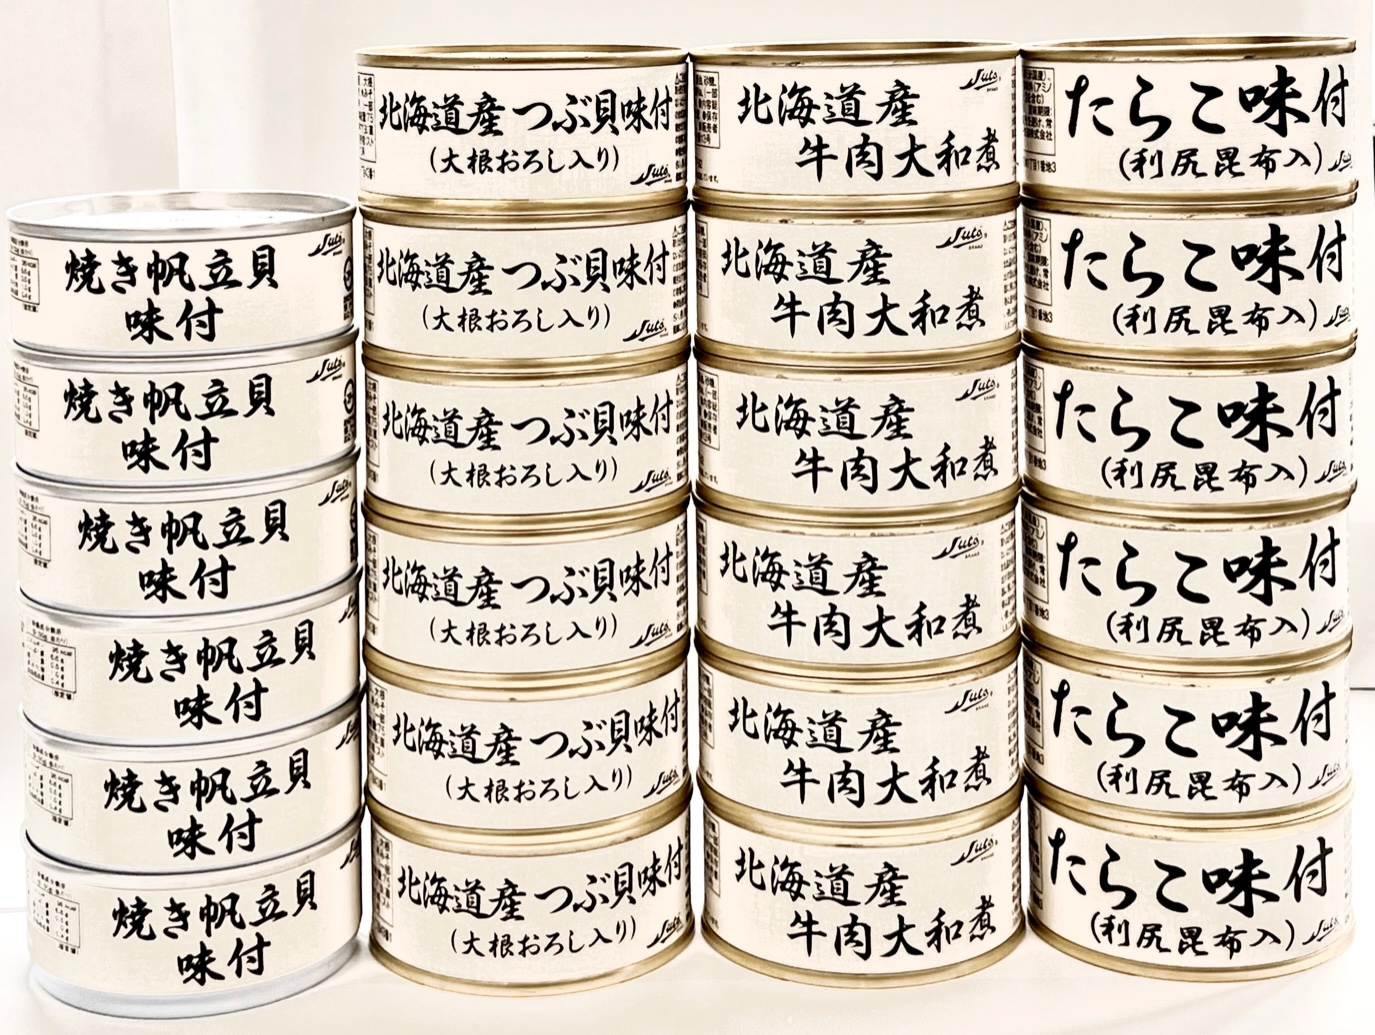 焼き帆立貝
味付
焼き帆立貝
味付
焼き帆立貝
味付
焼き帆立貝
味付
焼き帆立貝
味付
焼き帆立貝
味付
北海道産 つぶ貝味付
(大根おろし入り)
北海道産 つぶ貝味付
(大根おろし入り)
北海道産 つぶ貝味付
(大根おろし入り)
北海道産 つぶ貝味付
(大根おろし入り)
北海道産 つぶ貝味付
(大根おろし入り)
北海道産 つぶ貝味付
(大根おろし入り)
北海道産
牛肉大和煮
北海道産
牛肉大和煮
北海道産
牛肉大和煮
北海道産
牛肉大和煮
北海道産
牛肉大和煮
北海道産
牛肉大和煮
たらこ味付
(利尻昆布入)
たらこ味付
(利尻昆布入)
たらこ味付
(利尻昆布入)
たらこ味付
(利尻昆布入)
たらこ味付
(利尻昆布入)
たらこ味付
(利尻昆布入)